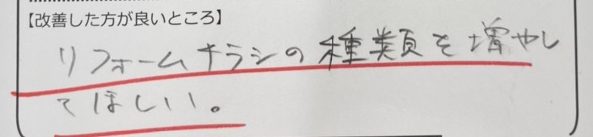 【改善した方が良いところ】
リフォームチラシの種類を増やし
てほしい。